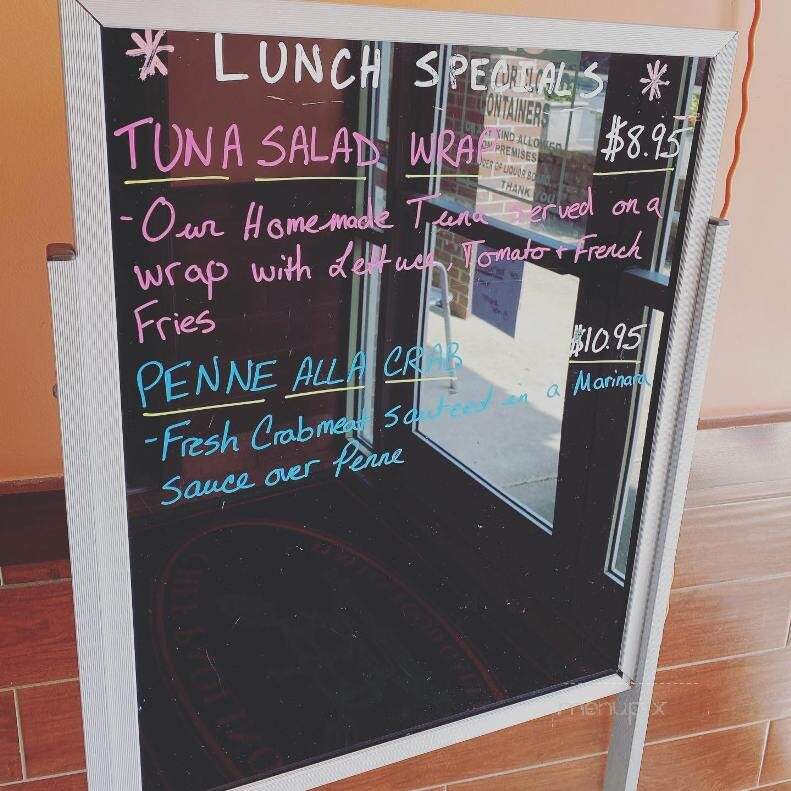 * LUNCH SPECIALS *
TUNA SALAD WRAP $8.95
- Our Homemade Tuna served on a
wrap with Lettuce, Tomato + French
Fries
PENNE ALLA CRAB $10.95
- Fresh Crabmeat sauteed in a Marinara
Sauce over Penne
CONTAINERS
KIND ALLOWED
PREMISES
OF LIQUOR
THANK
menupix